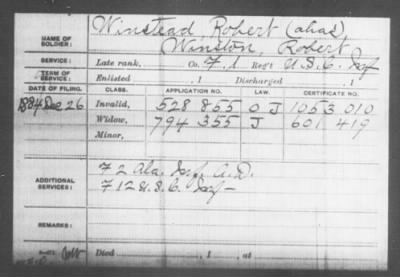 NAME OF SOLDIER: Winstead, Robert (alias)
Winston, Robert
SERVICE: Late rank, Co. F, 1 Reg't U.S.C. Inf
TERM OF SERVICE: Enlisted , 1 Discharged , 1
DATE OF FILING. CLASS. APPLICATION NO. LAW. CERTIFICATE NO.
1884 Dec 26 Invalid, 528 855 O J 1053 010
Widow, 794 355 J 601 419
Minor,
ADDITIONAL SERVICES: F 2 Ala. Inf. A.D.
F 12 U.S.C. Inf
REMARKS:
Died , 1 , at